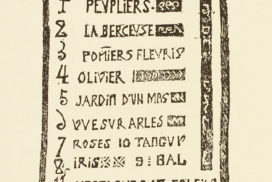 1 PEUPLIERS.
2 LA BERCEUSE
3 POMIERS FLEURIS
4 OLIVIER I
5 JARDIN D'UN MAS
6 VUE SUR ARLES
7 ROSES 10 TANGUY
8 IRIS 9 BAL